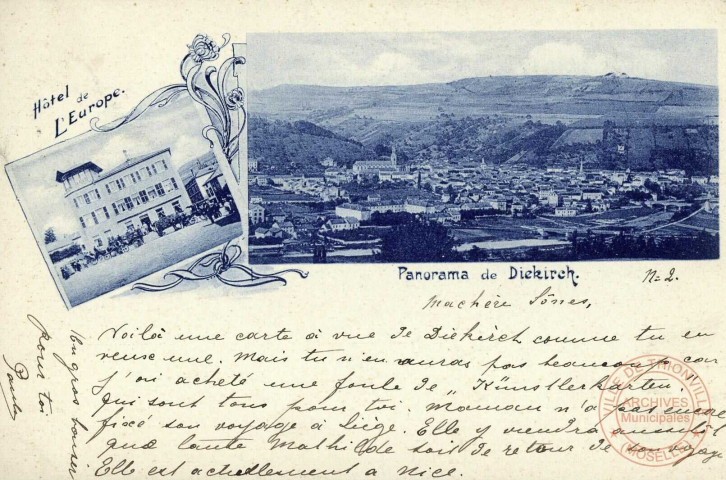 Hôtel de
L'Europe.
Panorama de Diekirch.
N= 2.
Ma chère
Voilà une carte à vue de Diekirch comme tu en
veux une. Mais tu n'en auras pas beaucoup car
j'ai acheté une foule de „Künstlerkarten"
qui sont tous pour toi. Maman n'a pas encore
fixé son voyage à Liège. Elle y viendra aussitôt
que tante Mathilde soit de retour de son voyage
Elle est actuellement a Nice.
Un gros baiser
pour toi
Paula
VILLE DE THIONVILLE
ARCHIVES
Municipales
(MOSELLE)